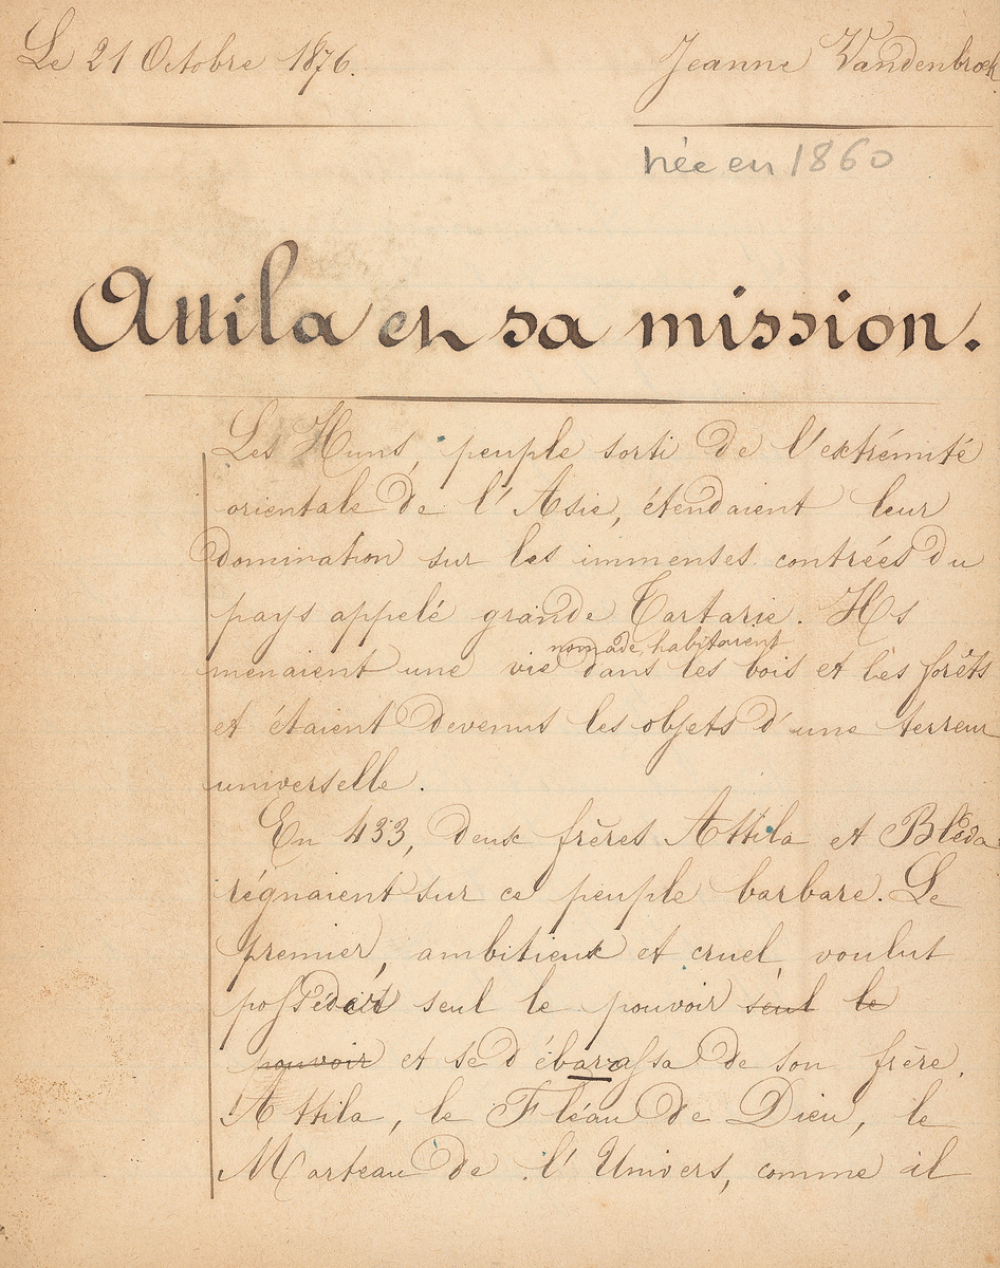 Le 21 Octobre 1876.
Jeanne Vandenbroek
née en 1860
Attila et sa mission.
Les Huns, peuple sorti de l'extrémité
orientale de l'Asie, étendaient leur
domination sur les immenses contrées du
pays appelé grande Tartarie. Ils
nomade, habitaient
menaient une vie dans les bois et les forêts
et étaient devenus les objets d'une terreur
universelle.
En 433, deux frères Attila et Bléda
régnaient sur ce peuple barbare. Le
premier, ambitieux et cruel, voulut
posséder seul le pouvoir seul le
pouvoir et se d'ébarassa de son frère.
Attila, le Fléau de Dieu, le
Marteau de l'Univers, comme il